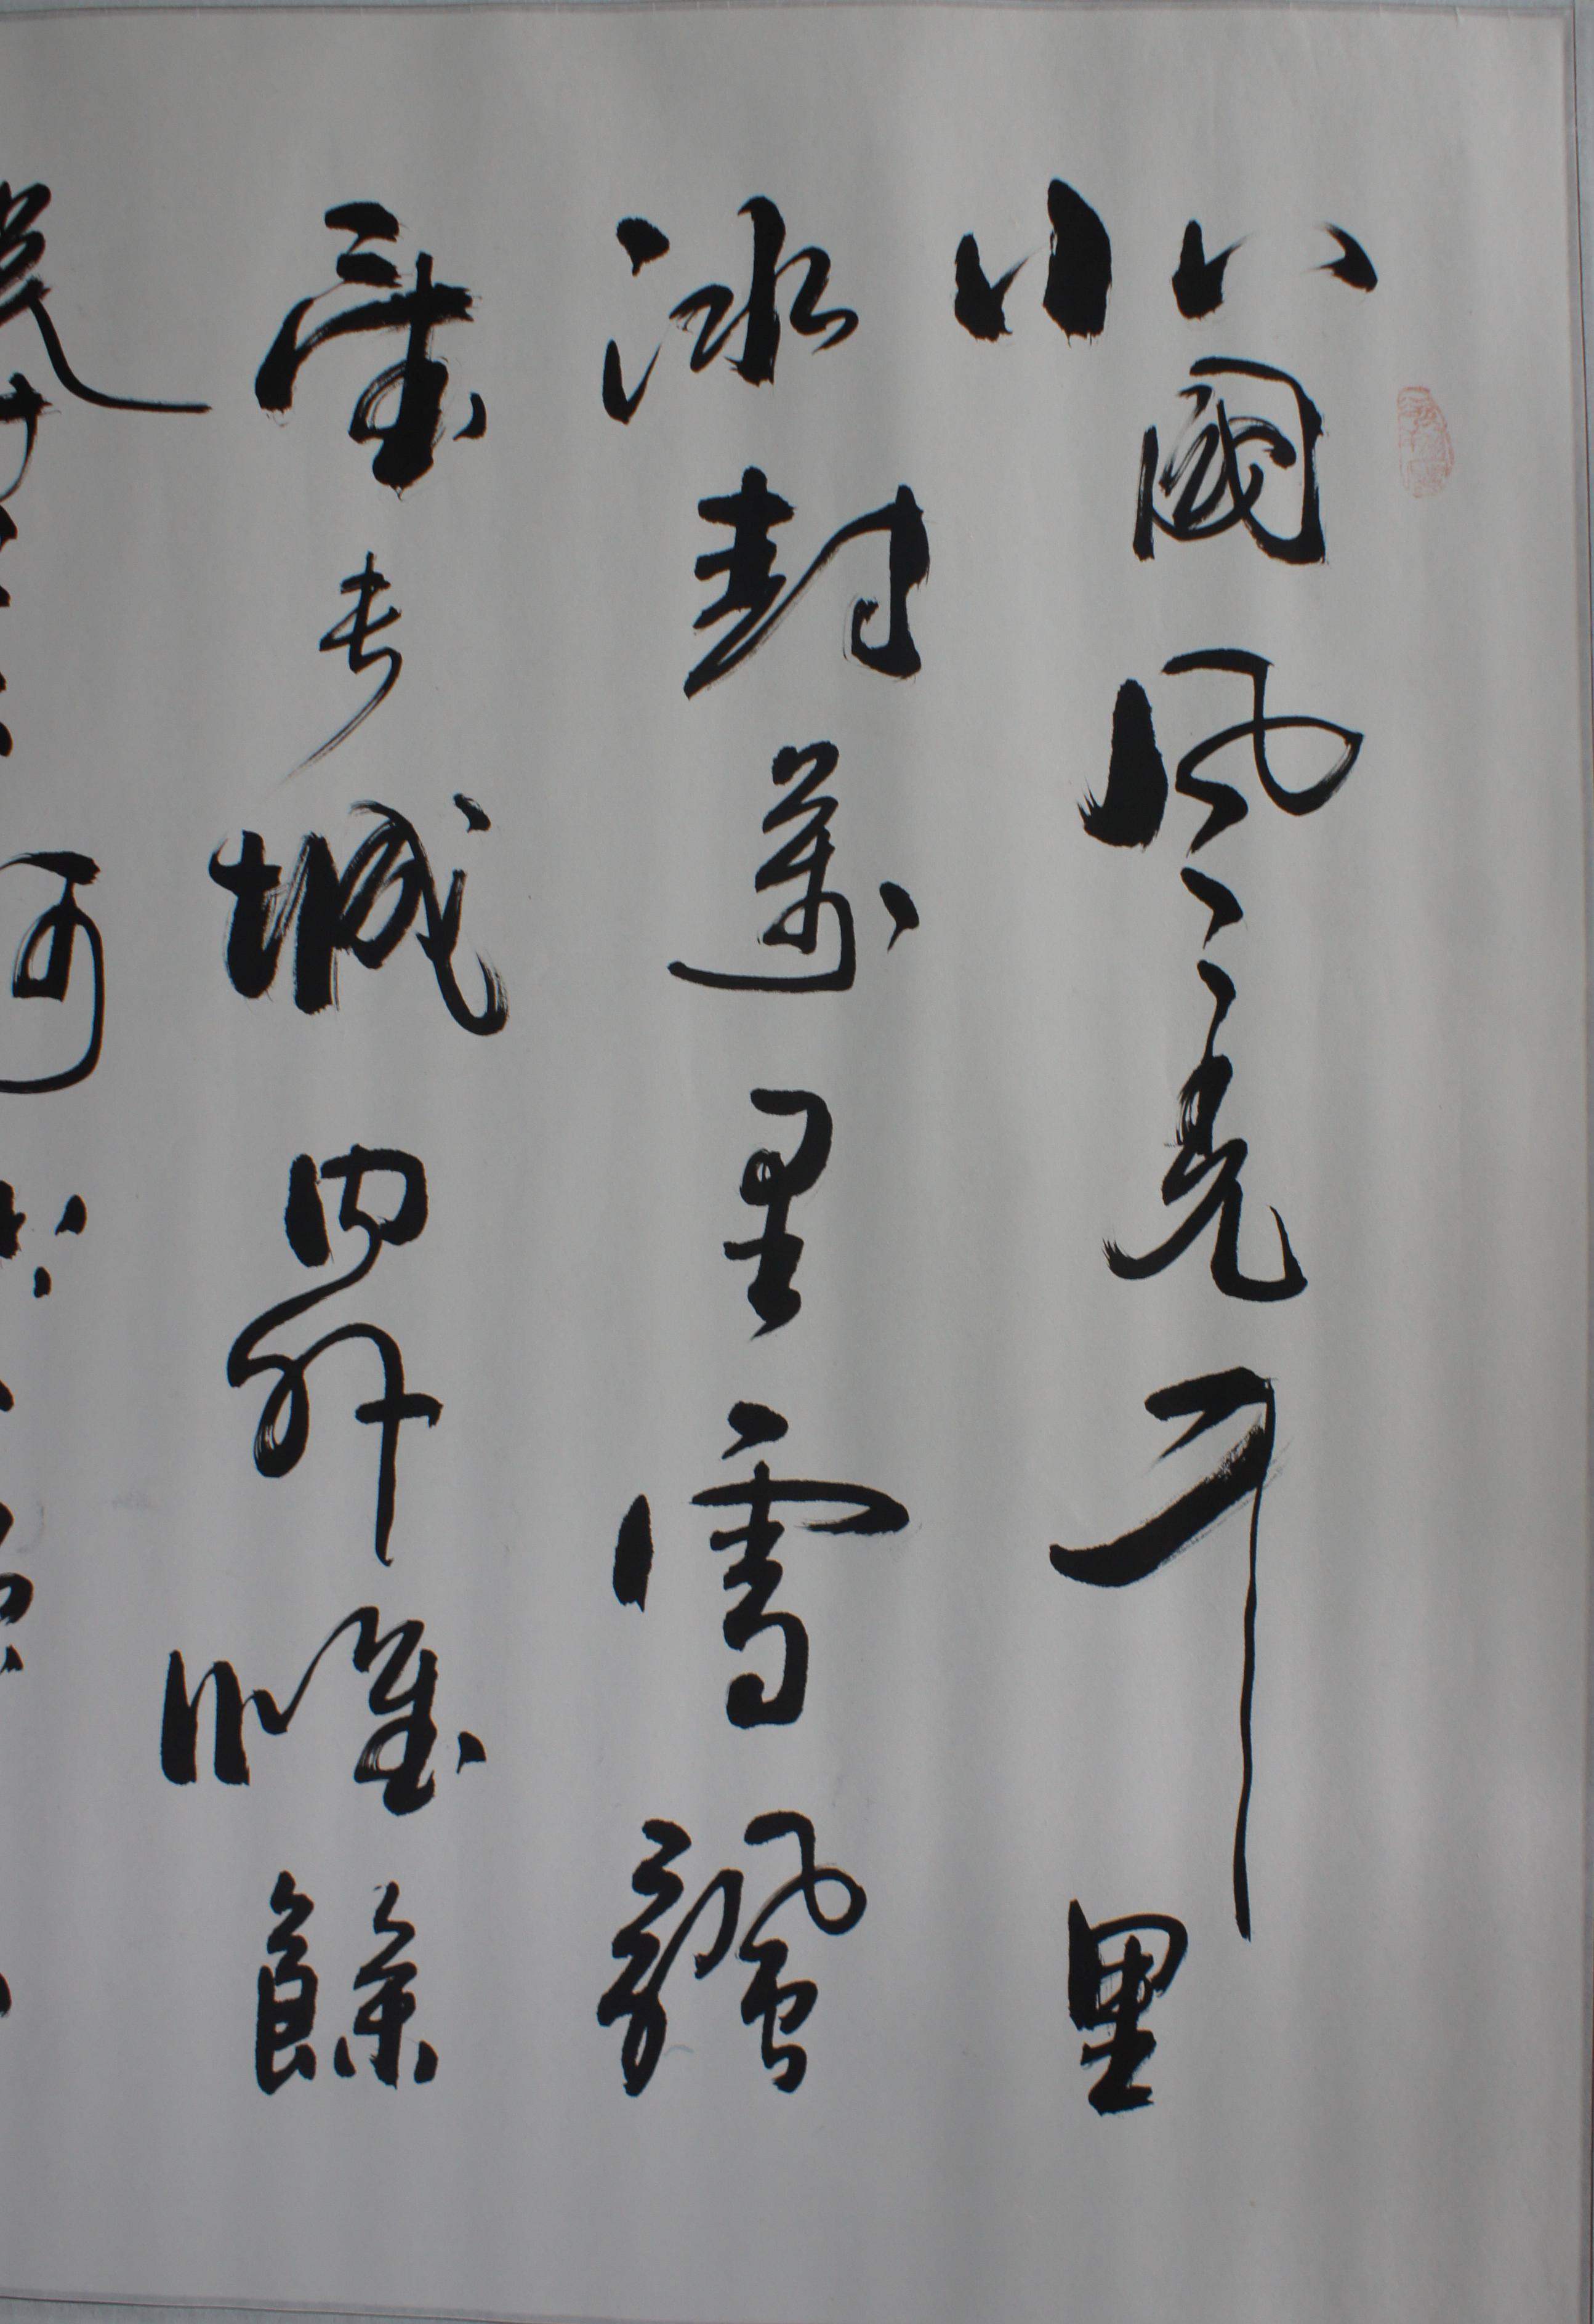 北國風光千里
冰封萬里雪飄
望長城內外惟餘